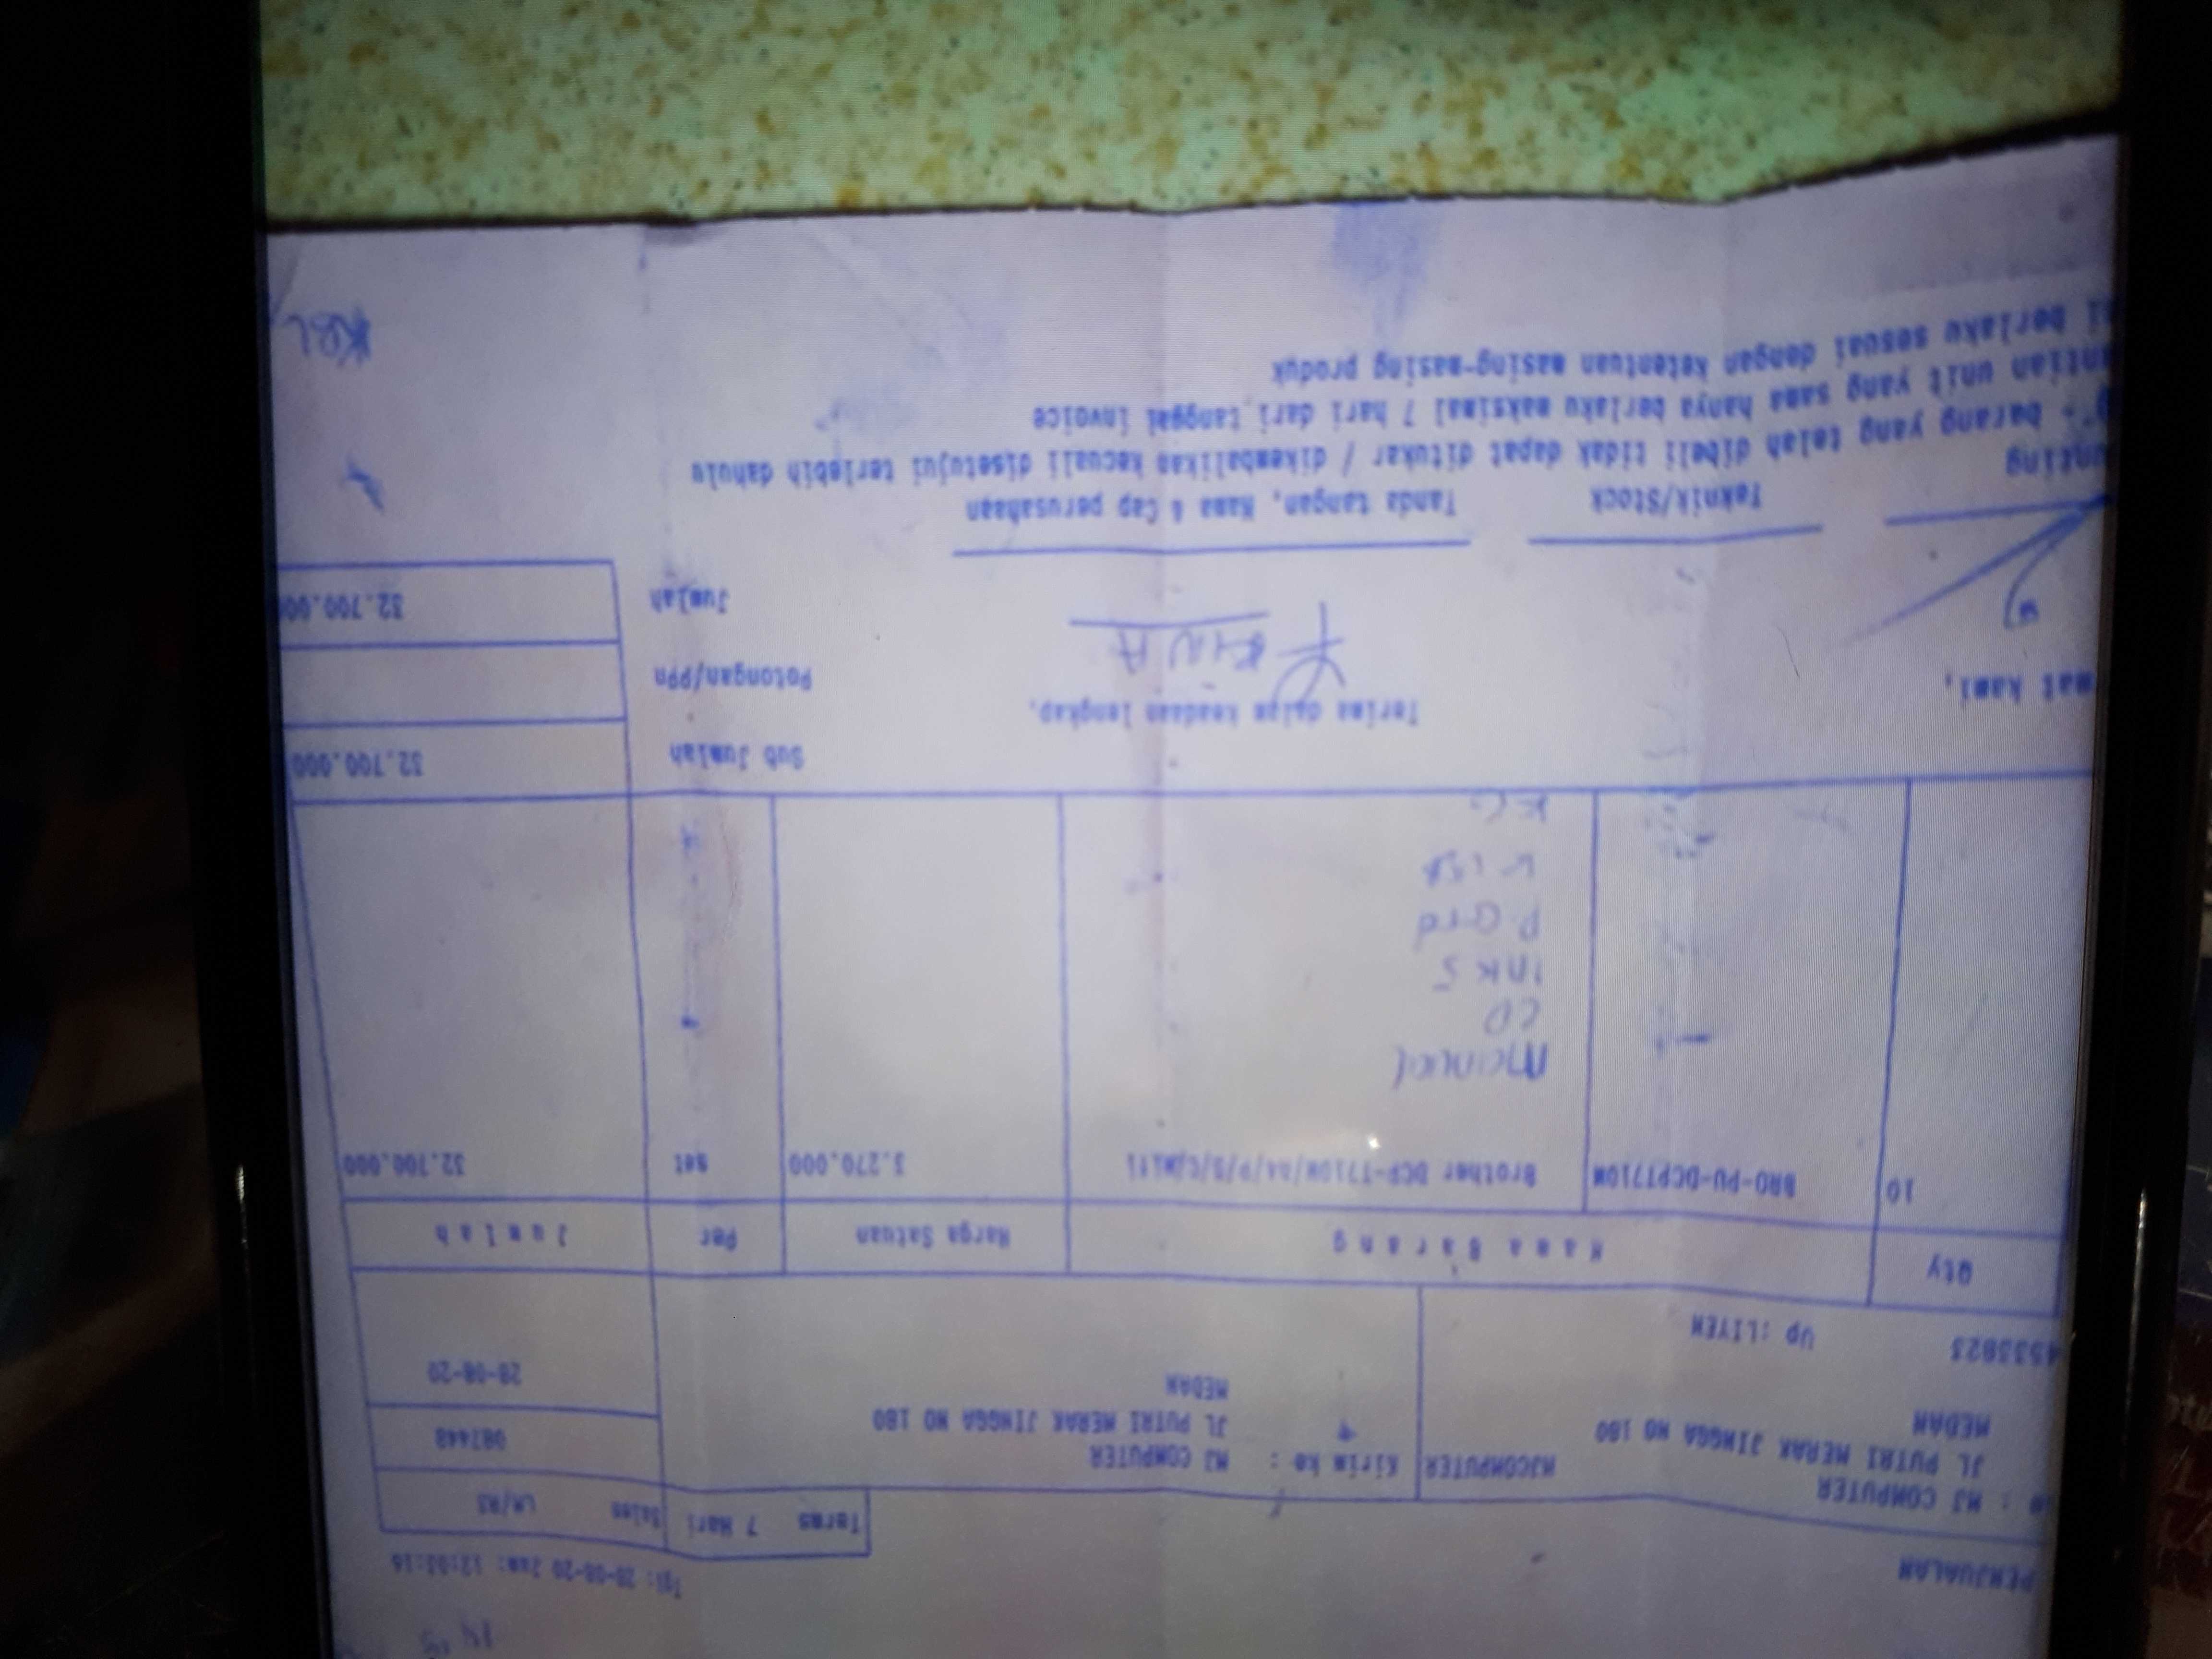 PENJUALAN
Tgl: 28-08-20 Jam: 12:03:16
Terms 7 Hari Sales LM/RJ
: MJ COMPUTER MJCOMPUTER
JL PUTRI MERAK JINGGA NO 180
MEDAN
4533823 Up :LIYEN
Kirim ke : MJ COMPUTER
JL PUTRI MERAK JINGGA NO 180
MEDAN
087448
28-08-20
Qty Nama Barang Harga Satuan Per Jumlah
10 BRO-PU-DCPT710W Brother DCP-T710W/A4/P/S/C/Wifi 3.270.000 set 32.700.000
Manual
CD
INK 5
K USB
Sub Jumlah 32.700.000
Potongan/PPn
Jumlah 32.700.00
mat kami,
Terima dalam keadaan lengkap,
Teknik/Stock
Tanda tangan, Nama & Cap perusahaan
nting
barang yang telah dibeli tidak dapat ditukar / dikembalikan kecuali disetujui terlebih dahulu
antian unit yang sama hanya berlaku maksimal 7 hari dari tanggal invoice
i berlaku sesuai dengan ketentuan masing-masing produk
KBL